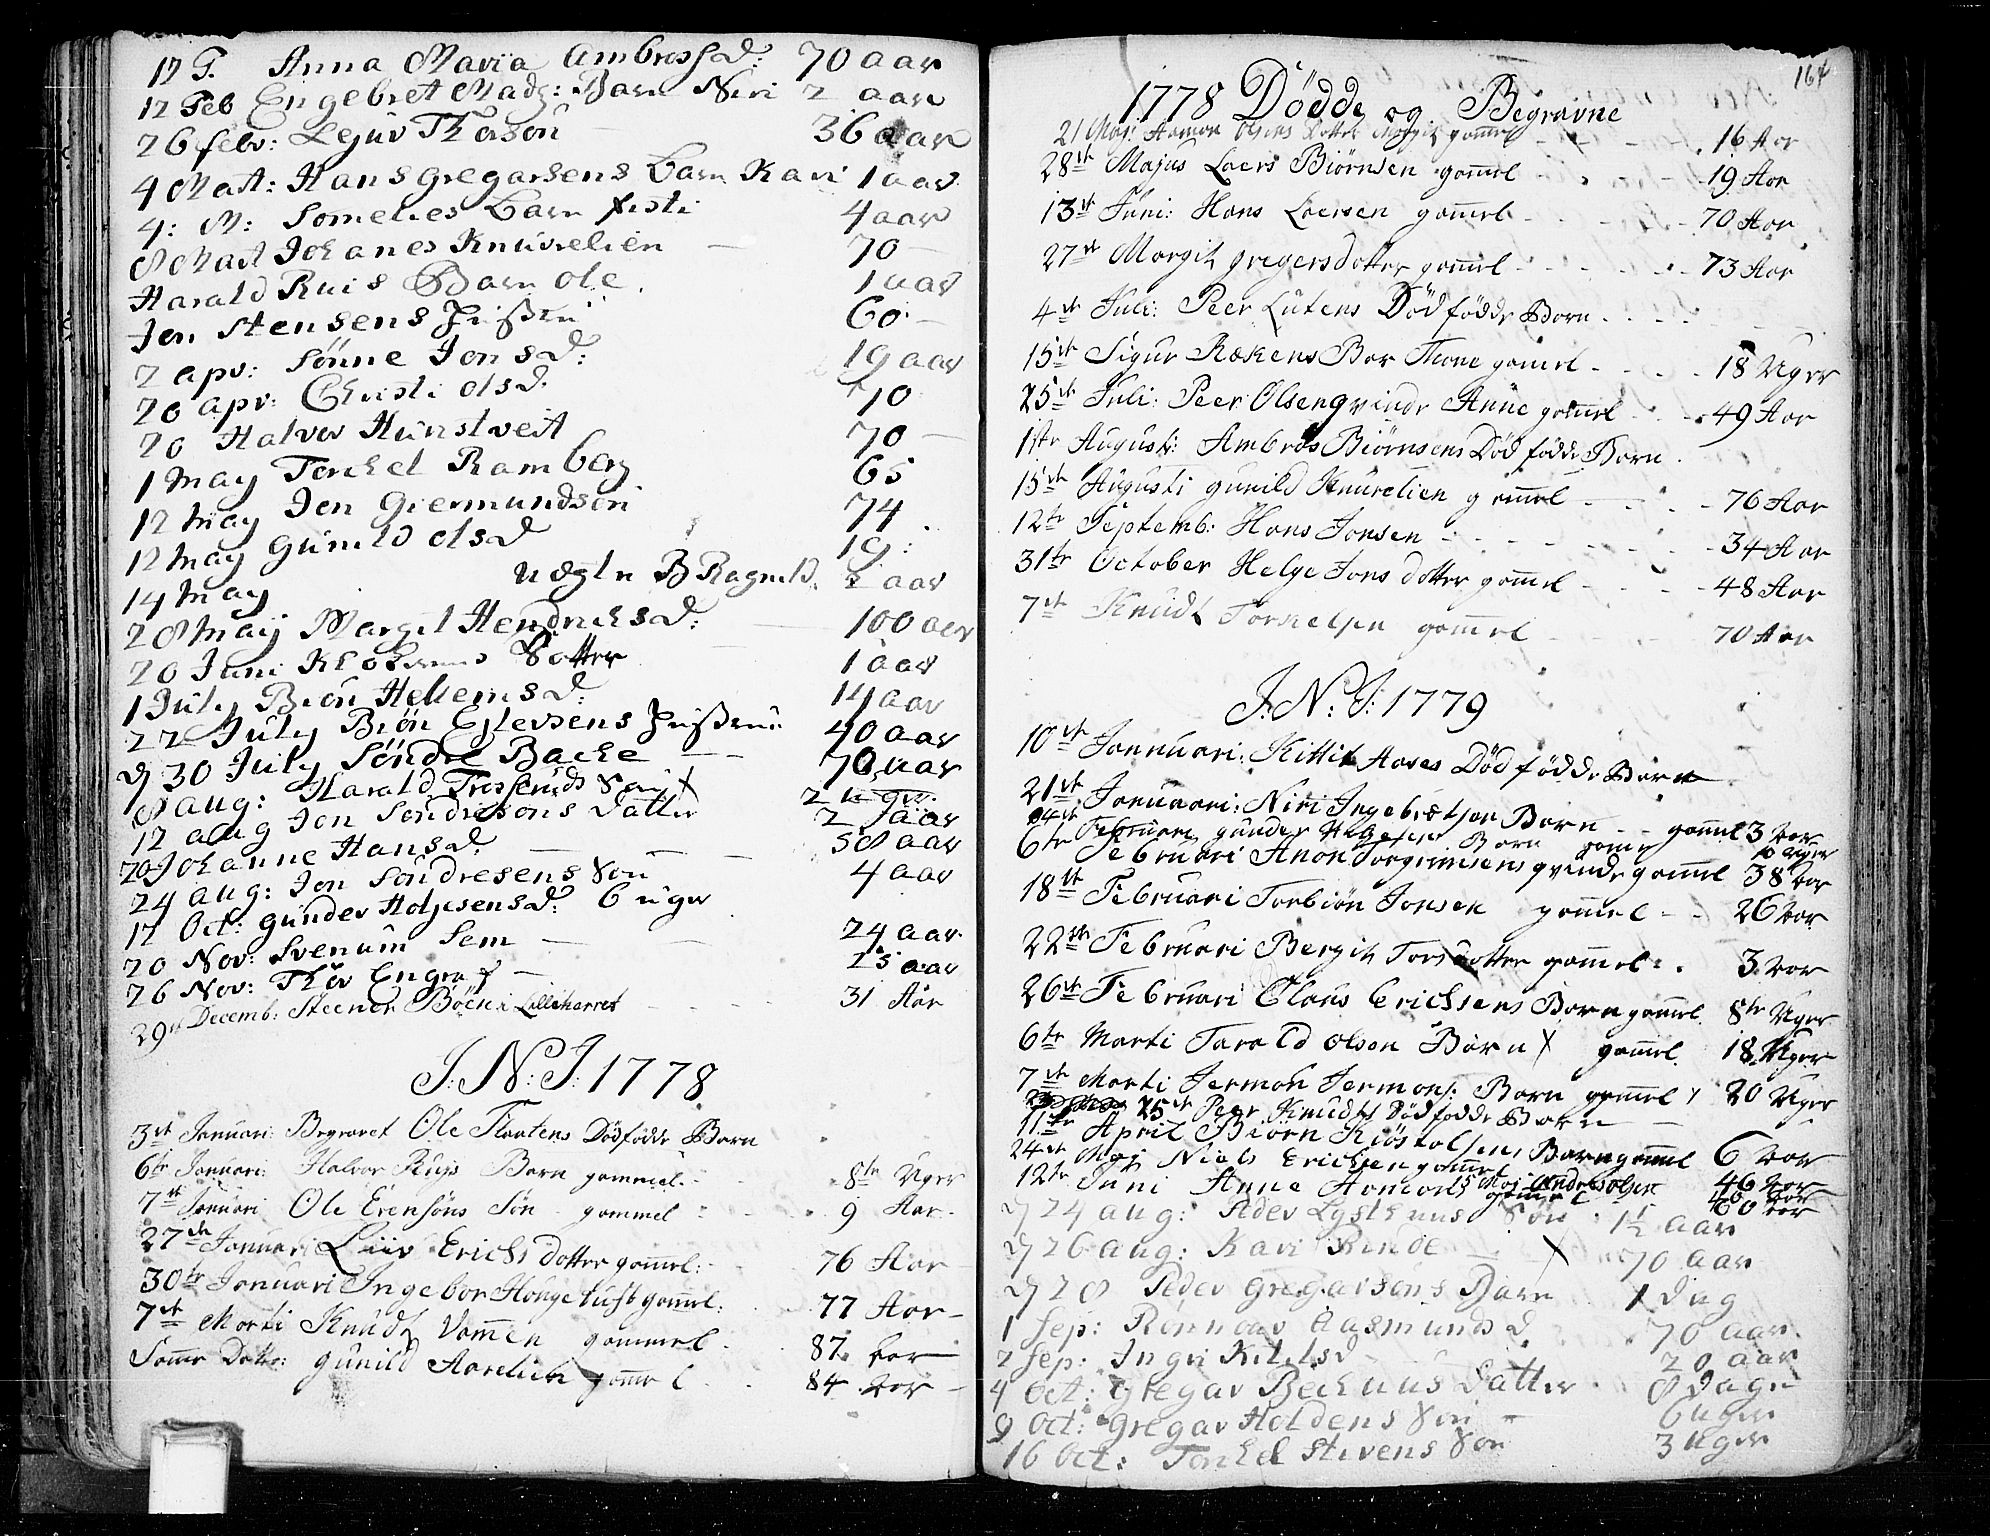 17 F. Anna Maria Ambrossd: 70 aar
12 Feb Engebret Mads: Barn Niri 2 aar
26 febr: Lejur Thorson 36 aar
4 Mart: Hans gregarsens barn Kari 1 aar
4: M: Somelies barn kisti 4 aar
8 Mart Johanes Knurelien 70 —
Harald Ruis Barn Ole 1 aar
Jon Stensens 60 —
2 apr: Sönne Jons d: 19 aar
20 apr: Christi Ols d. 70
20 Halvor Hunstveit 70 —
1 may Torkel Ramberg 65
12 may Jon Giermundson 74
12 may Gunild Ols d 19:
14 may B Ragnild. 2 aar
28 maij Margit Hendrichs d: 100 aar
20 Juni Dotter 1 aar
1 July Brön d: 14 aar
22 July Brön Ejlevsens 40 aar
D 30 July Söndre Backe — 70 aar
8 aug: Harald Son X 2 uger
12 aug Jon Söndresons datter 2 aar
20 Johanne Hans d. — 58 aar
24 aug: Jon Söndresens Son 4 aar
17 Oct: gunder Holjesens d: 6 uger
20 Nov: Svenum Sem — 24 aar
26 Nov: Thor Engraf — 25 aar
29de Decemb: Steener Böen i Lilleherret 31 Aar
J: N: J: 1778
3de Januari: Begravet Ole Flaatens Dödfödde Barn
6te Januari: Halvor Rujs Barn gammel 8te Uger
7de Januari Ole Erensöns Sön gammel 9 Aar
27de Januari Liiv Erichsdotter gammel: 76 Aar
30te Januari Ingebor Hougetuft gammel: 77 Aar —
7de Marti Knudt Vammen gammel 87 Aar
Samme Dato: Gunild Aarelien gammel 84 Aar —
164
1778 Dödde og Begravne
21 Maj: Aamon Olsens Dotter Margit gammel 16 Aar
28de Majus Laers Biörnsen gammel 19 Aar
13de Juni: Hans Laersen gammel 70 Aar
27de Margit gregersdotter gammel 73 Aar
4de Juli: Peer Lutens Död födde Barn
15de Sigur Rækens Bar Thone gammel 18 Uger
25de Juli: Peer Olsen qvinde Anne gammel 49 Aar
1ste Augusti: Ambros Biörnsens Död födde Barn
15de Augusti gunild Knurelien gammel 76 Aar
12te Septemb: Hans Jonsen 34 Aar
31te October Helge Jons dotter gammel 48 Aar
7de Knudt Torkelsen gammel 70 Aar
J: N: J: 1779
10de Januari: Kittil Aases Död födde Barn
21de Januari: Niri Ingebretsen Barn gammel 3 Aar
04de Februari gunder Helgesen Barn gamm 10 Uger
6te Februari Anon Torgrimsens qvinde gammel 38 Aar
18de Februari Torbiön Jonsen gammel 26 Aar
22de Februari Bergit Torsdotter gammel 3 Aar
26de Februari Claus Erichsens Barn gammel 8te Uger
6te Marti Tarald Olson Barn X gammel 18 Uger
7de Marti Jermon Jermons: Barn gammel 20 Uger
25de Peer Knudts Dödfödde Barn —
11te April Biörn Kiöstolsens Barn gammel 6 Aar
24de Maj Niels Erichsen gammel 46 Aar
15 Maj Anders Olsen gammel 40 Aar
12te Juni Anne 60 Aar
D 24 aug: Ader Son 1½ aar
D 26 aug: Kari Rinde — X 70 aar
D 28 Peder Gregarsons Barn 1 Dag
1 Sep: Rönnoug Aasmunds d 70 aar
2 Sep: Ingri Kitels d 20 aar
4 Oct: Gregar Bechuus Datter 8 Dage
9 Oct: Gregar Holdens Son 6 uger
16 Oct: Torkel Stivens Son 3 uger